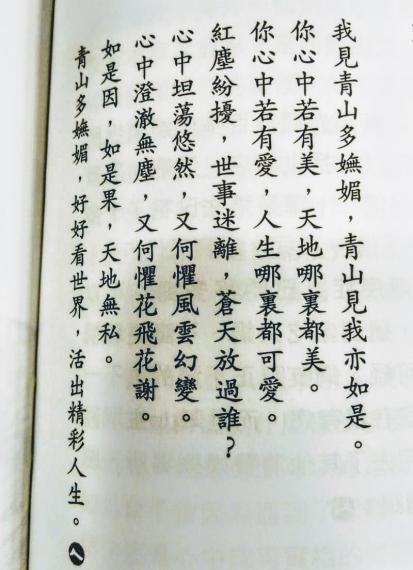 我見青山多嫵媚，青山見我亦如是。
你心中若有美，天地哪裏都美。
你心中若有愛，人生哪裏都可愛。
紅塵紛擾，世事迷離，蒼天放過誰？
心中坦蕩悠然，又何懼風雲幻變。
心中澄澈無塵，又何懼花飛花謝。
如是因，如是果，天地無私。
青山多嫵媚，好好看世界，活出精彩人生。